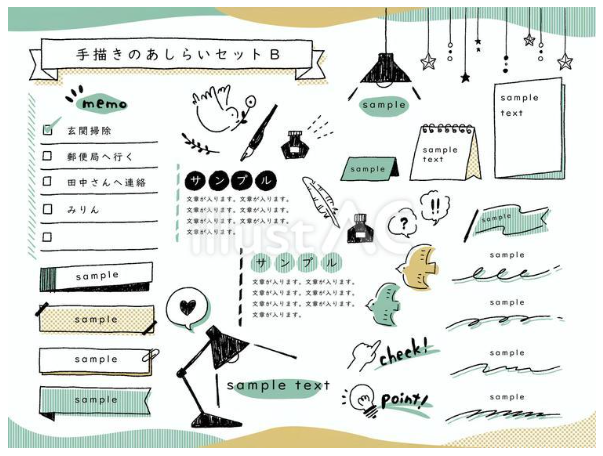 手描きのあしらいセットB
memo
玄関掃除
郵便局へ行く
田中さんへ連絡
みりん
sample
sample
sample
sample
サンプル
文章が入ります。文章が入ります。
文章が入ります。文章が入ります。
文章が入ります。文章が入ります。
文章が入ります。
サンプル
文章が入ります。文章が入ります。
文章が入ります。文章が入ります。
文章が入ります。文章が入ります。
文章が入ります。
sample text
sample
sample
sample
text
sample
text
?
!!
sample
check!
point!
sample
sample
sample
sample
illust AC